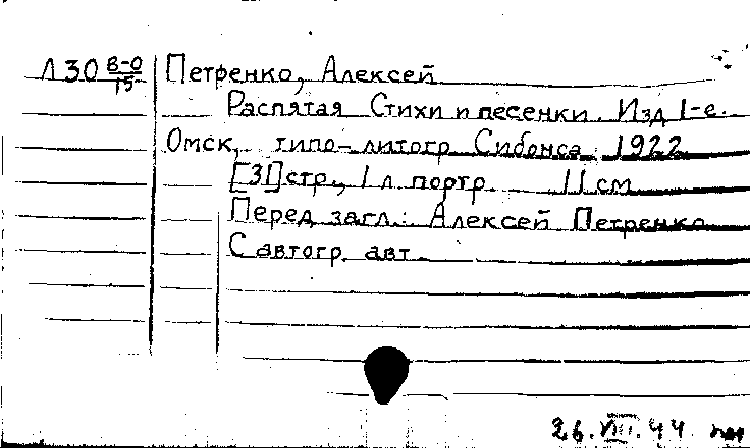 Л30 В-0/15 Петренко, Алексей
Распятая Стихи и песенки. Изд 1-е.
Омск, типо-литогр. Сибопса, 1922
[31] стр., 1 л. портр. 11 см
Перед загл.: Алексей Петренко
С автогр. авт.
26.VIII.44